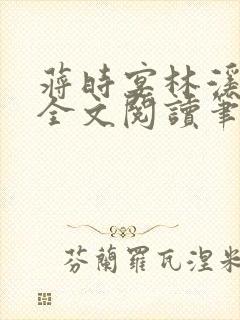 蔣時宴林溪
全文閱讀筆
芬蘭羅瓦涅米